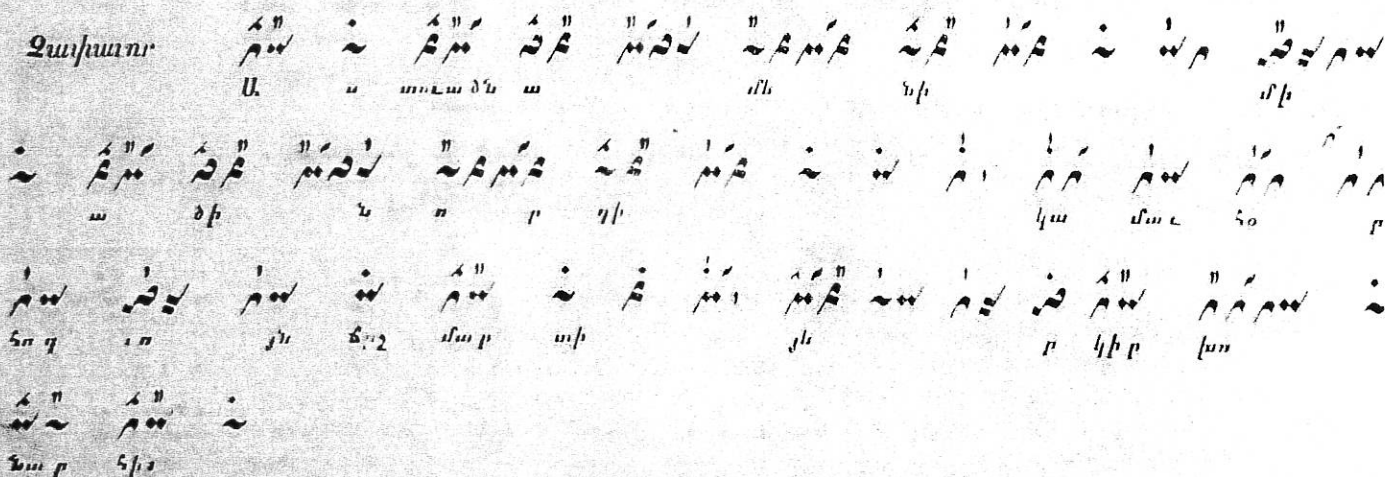 Չափաւոր Ա ս տուա ծն ա մե նի մի
ա ծի ն ո ր դի կա մաւ հօ ր
հոգ ւո յն ճըշ մար տի յե ր կիր խո
նար հիս